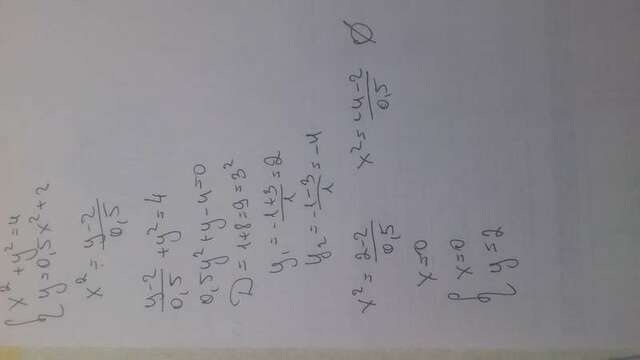 { x² + y² = 4
{ y = 0,5x² + 2
x² = (y-2)/0,5
(y-2)/0,5 + y² = 4
0,5y² + y - 4 = 0
D = 1+8 = 9 = 3²
y₁ = (-1+3)/1 = 2
y₂ = (-1-3)/1 = -4
x² = (2-2)/0,5    x² = (-4-2)/0,5 ∅
x = 0
{ x = 0
{ y = 2